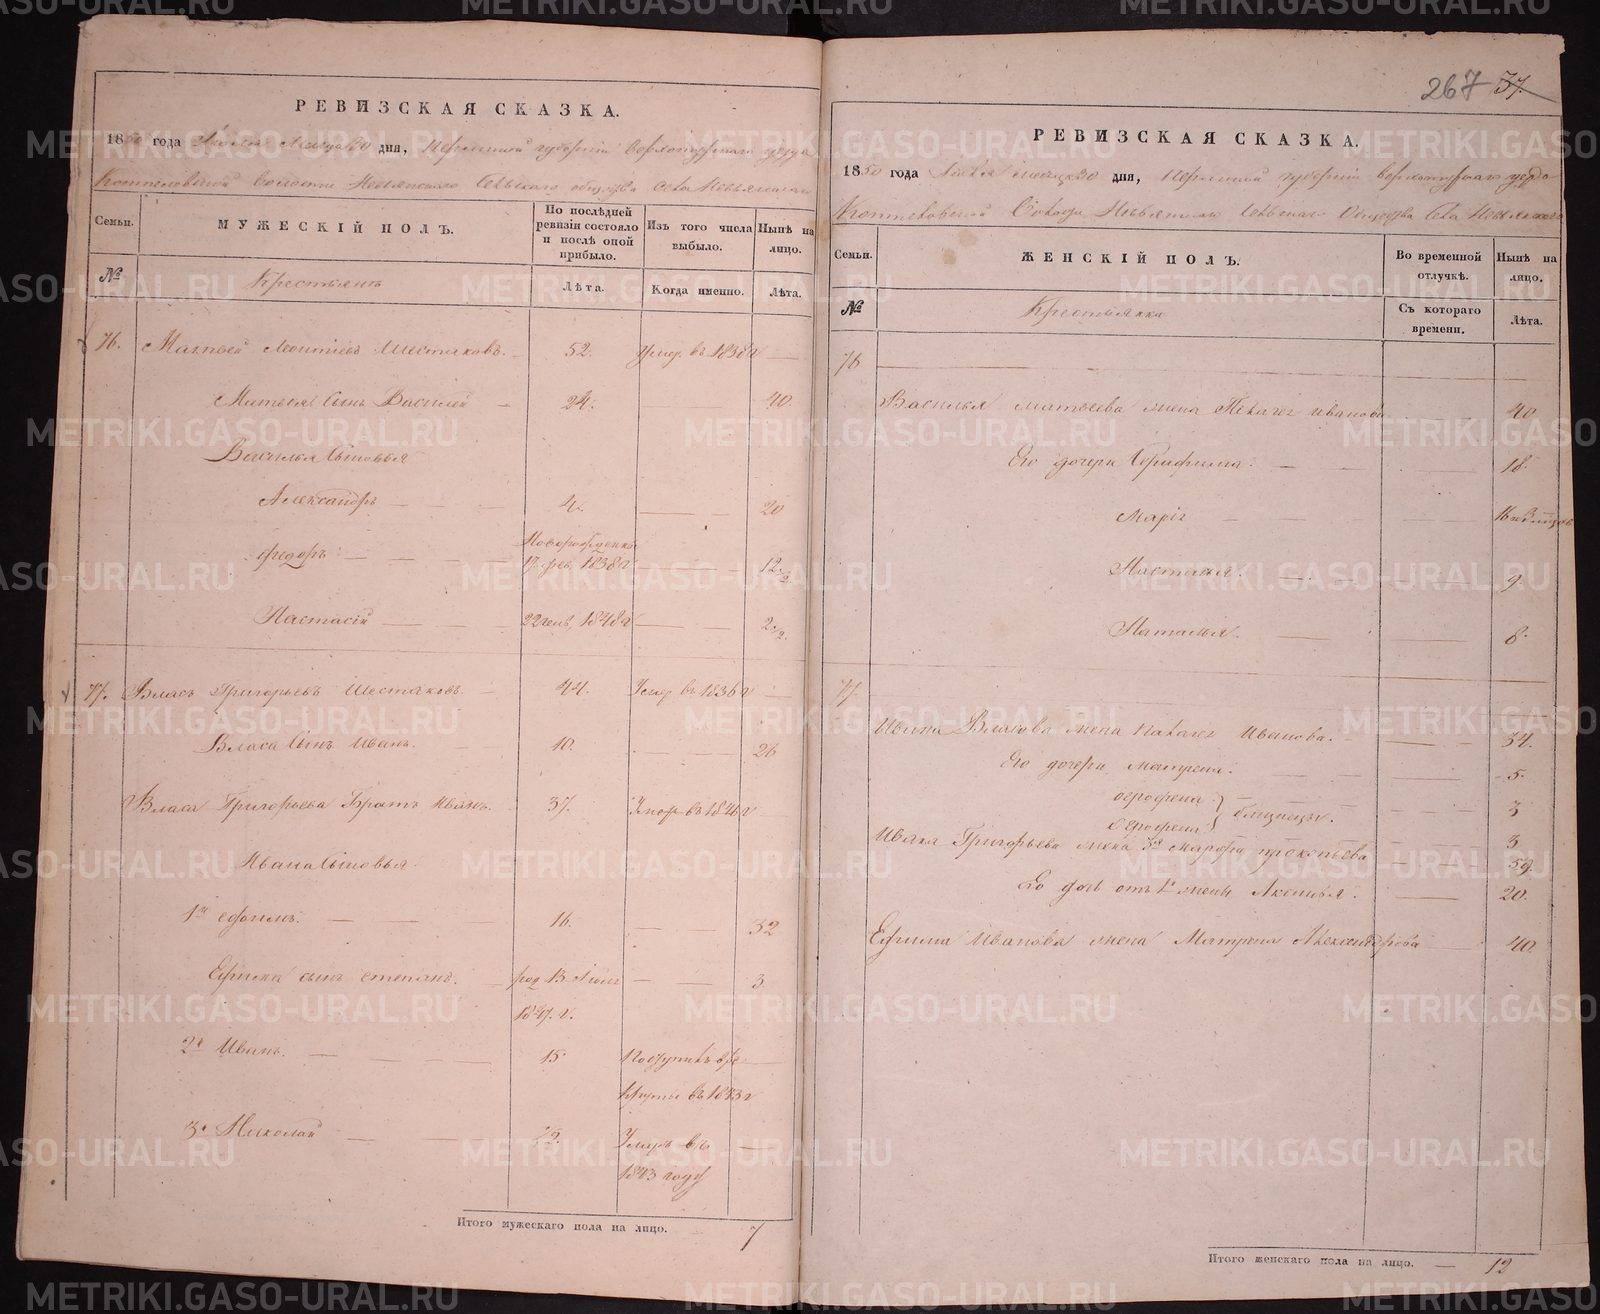 РЕВИЗСКАЯ СКАЗКА.
1850 года Июня Месяца 30 дня, Пермской губернии Верхотурскаго уезда
Коптеловской Волости Невьянскаго Сельскаго общества села Невьянскаго
Семьи. МУЖЕСКІЙ ПОЛЪ. По послѣдней ревизіи состояло и послѣ оной прибыло. Изъ того числа выбыло. Нынѣ на лицо.
№ Крестьянъ Лѣта. Когда именно. Лѣта.
76. Матвей Леонтіевъ Шестаковъ. 52. Умер. въ 1838 г
Матвея Сынъ Василей 24. 40.
Василья Сыновья
Александръ 4. 20
Федоръ Новорожденны 17 фев. 1838 г 12 1/2
Настасій 22 1848 г 2 1/2.
77. Власъ Григорьевъ Шестаковъ. 44. Умер въ 1836 г
Власа Сынъ Иванъ. 10. 26
Власа Григорьева Братъ Иванъ. 37. Умер въ 1846 г
Ивана Сыновья.
1й Ефимъ. 16. 32
Ефима сынъ Степанъ. род. В Июле 3
1847. г.
2й Иванъ. 15 Поступилъ в ре-
круты въ 1843 г
3й Николай 12. Умеръ въ
1843 году
Итого мужескаго пола на лицо. 7
267 37.
РЕВИЗСКАЯ СКАЗКА.
1850 года Июня месяца 30 дня, Пермской губернии Верхотурскаго уезда
Коптеловской Волости Невьянскаго Сельскаго Общества Села Невьянскаго
Семьи. ЖЕНСКІЙ ПОЛЪ. Во временной отлучкѣ. Нынѣ на лицо.
№ Крестьянки Съ котораго времени. Лѣта.
76
Василья Матвеева жена Пелагея Иванова 40
Его дочери Серафима. 18.
Марія
Настасья. 9.
Наталья. 8.
77.
Ивана Власова жена Палагея Иванова. 34.
Его дочери Матрена. 5.
близнецы. 3
3
Ивана Григорьева жена 3я Марфа Прокопьева 59.
Его дочь отъ 1й жены Аксинья. 20.
Ефима Иванова жена Матрена Александрова 40.
Итого женскаго пола на лицо. 12
METRIKI.GASO-URAL.RU